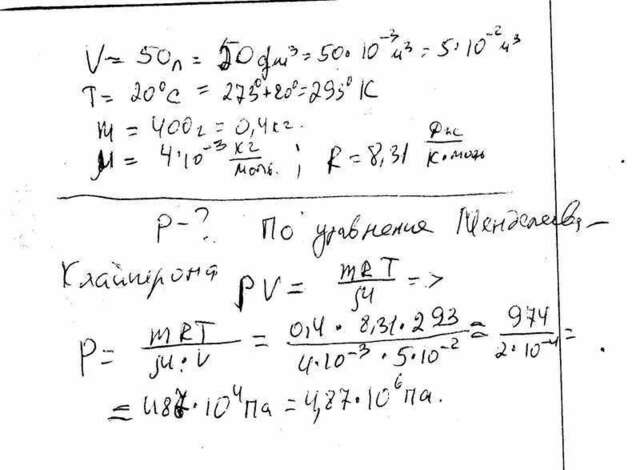 V = 50л = 50дм³ = 50·10⁻³м³ = 5·10⁻²м³
T = 20°C = 273°+20° = 293°K
m = 400г = 0,4кг.
μ = 4·10⁻³ кг/моль ; R = 8,31 Дж/К·моль
P-? По уравнения Менделеева-
Клайперона PV = mRT/μ =>
P = mRT/μ·V = 0,4·8,31·293/4·10⁻³·5·10⁻² = 974/2·10⁻⁴ =
= 487·10⁴Па = 4,87·10⁶Па.